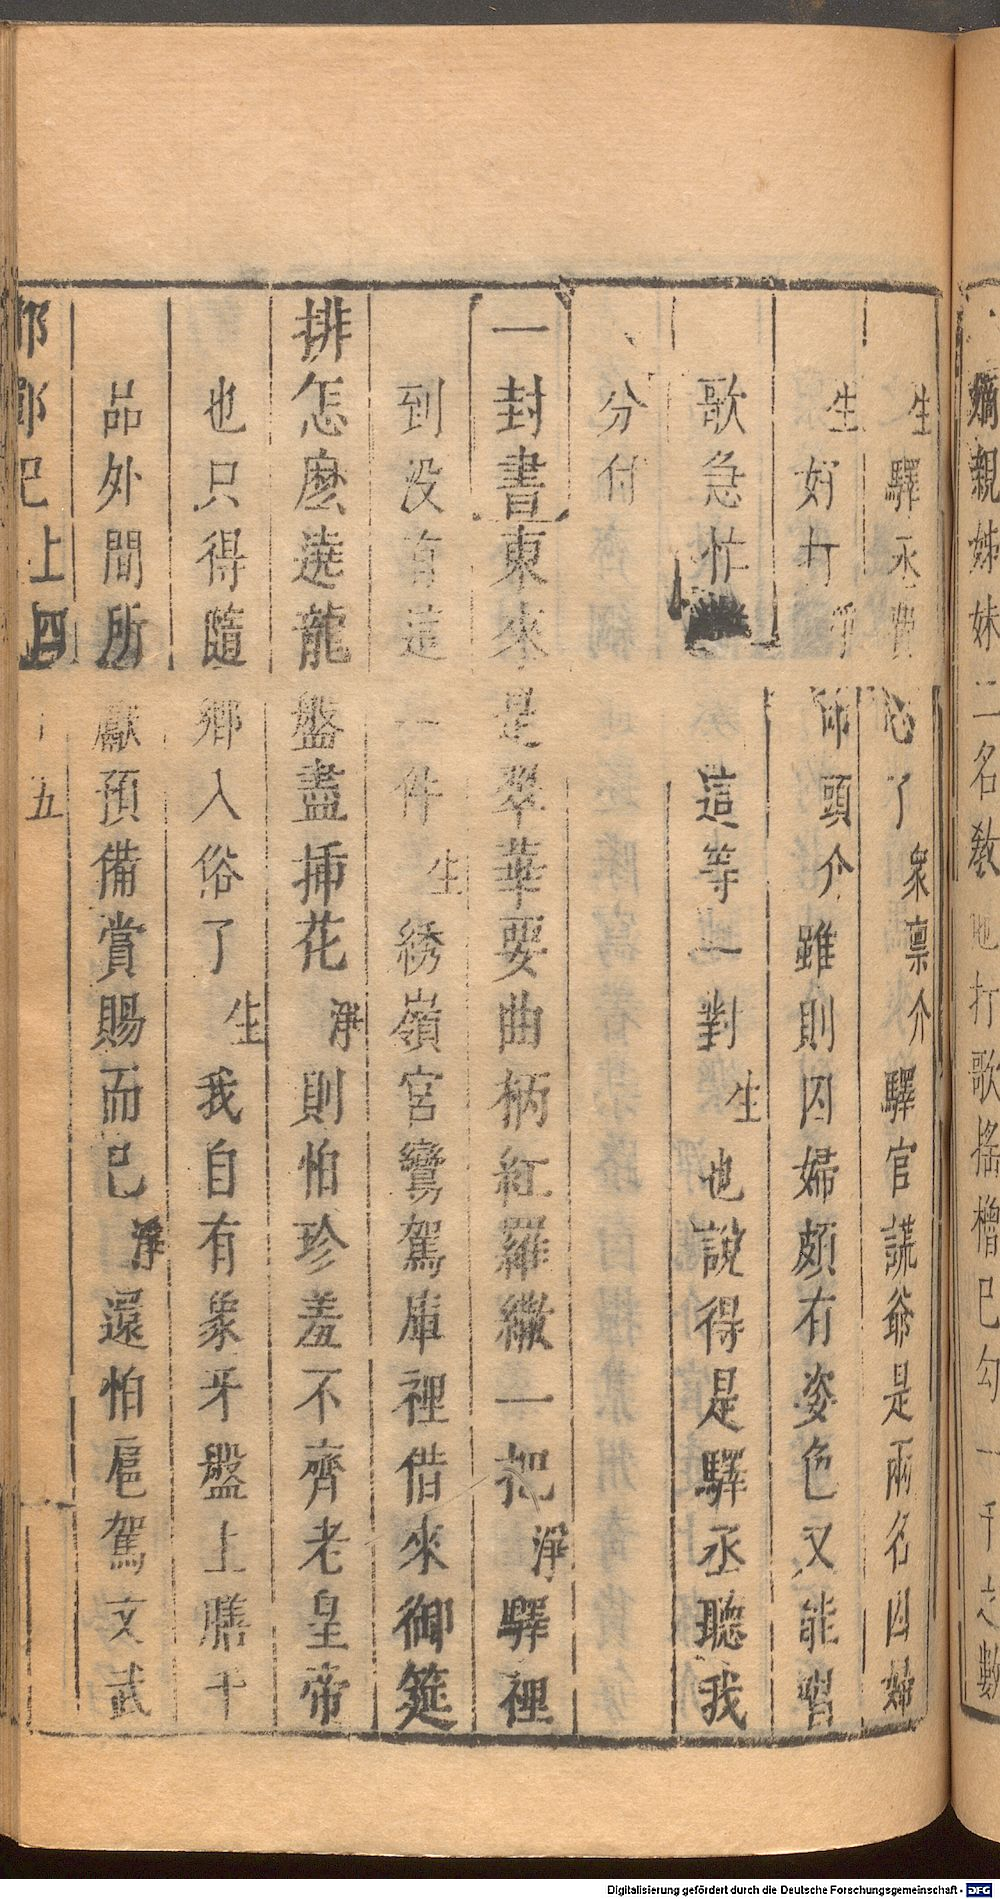 嫡親姊妹二名教他打歌搖櫓巴勾一千之數
生驛丞費心了衆禀介驛官謊爺是兩名囚婦
生好打淨叩頭介雖則囚婦頗有姿色又能唱
歌急忙這等一對生也說得是驛丞聽我
分付
一封書東來是翠華要曲柄紅羅繖一把淨驛裡
到没有這一件生綉嶺宮鸞駕庫裡借來御筵
排怎麽遶龍盤盡揷花淨則怕珍羞不齊老皇帝
也只得隨鄉入俗了生我自有象牙盤上膳千
品外間所獻預備賞賜而已淨還怕扈駕文武
邯鄲記上 四十五
Digitalisierung gefördert durch die Deutsche Forschungsgemeinschaft - DFG